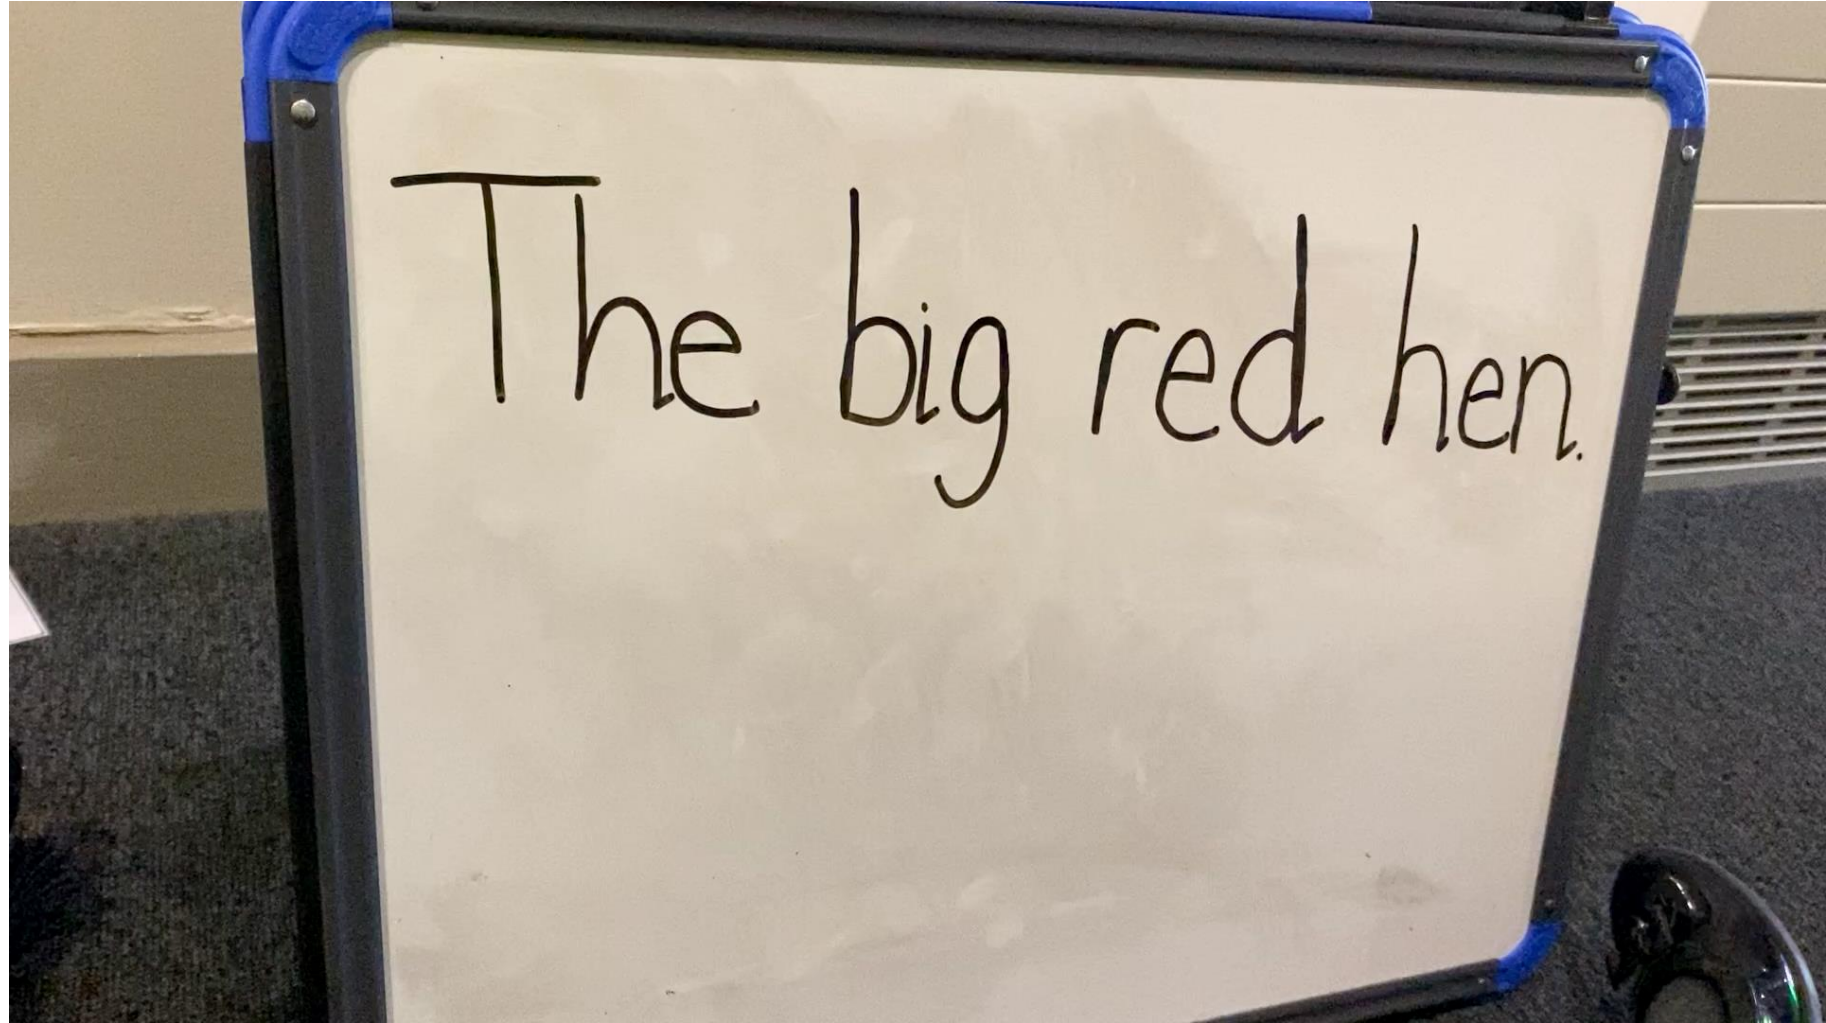 The big red hen.